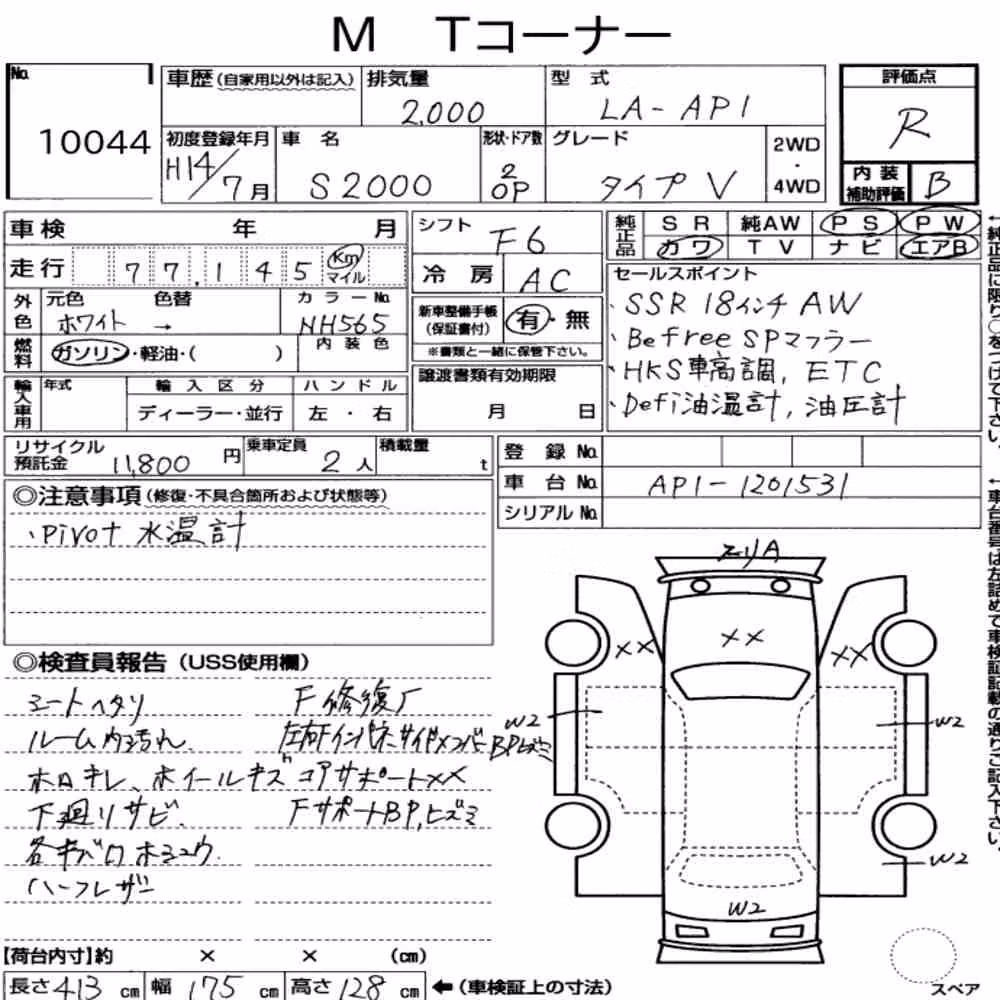 M Tコーナー
No. 10044
車歴(自家用以外は記入)
排気量 2,000
型式 LA-AP1
評価点 R
初度登録年月 H14/7月
車名 S2000
形状・ドア数 2 OP
グレード タイプV
2WD・4WD
内装補助評価 B
車検 年 月
シフト F6
純正品 SR 純AW PS PW
カワ TV ナビ エアB
走行 77,145 Km マイル
冷房 AC
セールスポイント
・SSR 18インチ AW
・Befree SPマフラー
・HKS車高調, ETC
・Defi油温計, 油圧計
外色 元色 ホワイト 色替 → カラーNo. NH565
新車整備手帳(保証書付) 有・無
※書類と一緒に保管下さい。
燃料 ガソリン・軽油・( ) 内装色
譲渡書類有効期限
月 日
輸入車用 年式 輸入区分 ハンドル
ディーラー・並行 左・右
リサイクル預託金 11,800円
乗車定員 2人
積載量 t
登録No.
車台No. AP1-1201531
シリアルNo.
◎注意事項(修復・不具合箇所および状態等)
・Pivot 水温計
◎検査員報告(USS使用欄)
シートヘタリ
ルーム内汚れ
ホロキレ、ホイールキズ
下廻りサビ
ハーフレザー
F修復歴
左右Fインパネ、サイドメンバーBPヒズミ
コアサポートXX
FサポートBP,ヒズミ
エリA
XX
XX
XX
W2
W2
W2
W2
【荷台内寸】約 × × (cm)
長さ413cm 幅175cm 高さ128cm ←(車検証上の寸法)
スペア
←純正品に限り○をつけて下さい。
←車台番号は左詰めで車検証記載の通りご記入下さい。